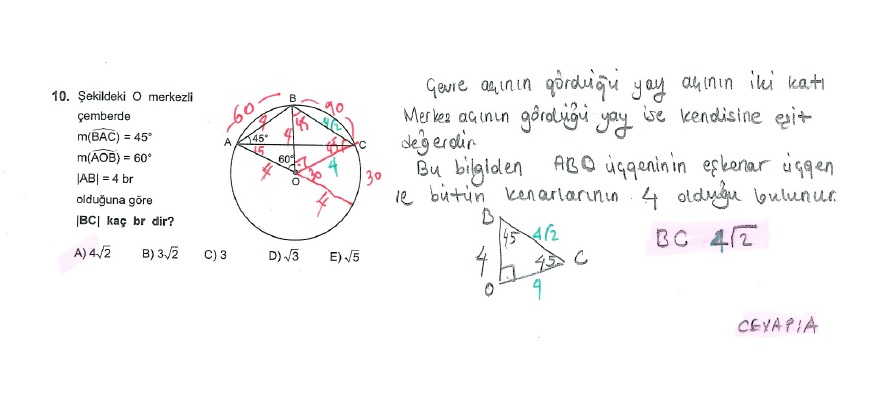 10. Şekildeki O merkezli
çemberde
m(BAC) = 45°
m(AOB) = 60°
|AB| = 4 br
olduğuna göre
|BC| kaç br dir?
A) 4√2 B) 3√2 C) 3 D) √3 E) √5
60 B 90
4 4 45 4√2
A 45° 15 45 C
60° 4 30 4 30
O 4
Çevre açının gördüğü yay açının iki katı
Merkez açının gördüğü yay ise kendisine eşit
değerdir.
Bu bilgiden ABO üçgeninin eşkenar üçgen
ve bütün kenarlarının 4 olduğu bulunur.
B
45 4√2
4 45 C
O 4
BC 4√2
CEVAP:A